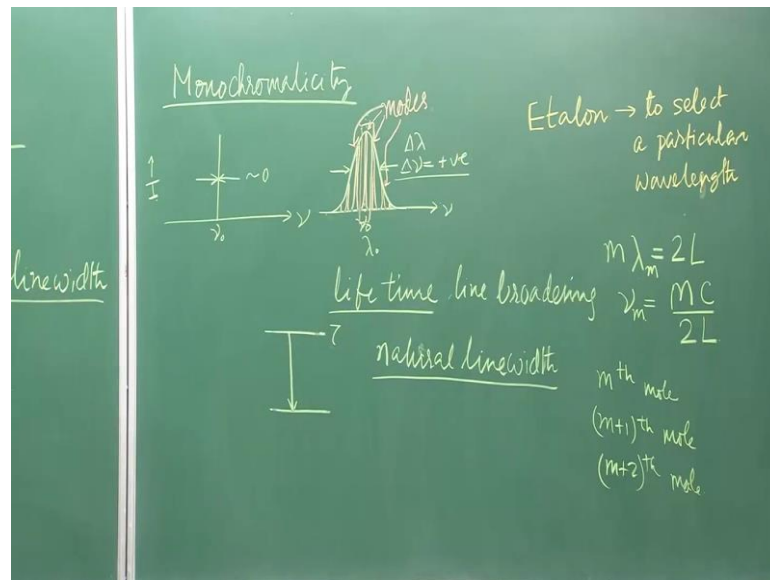 linewidth
Monochromaticity
↑
I
~0
ν₀
ν
modes
Δλ
Δν = +ve
ν₀
λ₀
ν
Etalon → to select
a particular
wavelength
life time line broadening
τ
natural linewidth
mλₘ = 2L
νₘ = mc/2L
mᵗʰ mode
(m+1)ᵗʰ mode
(m+2)ᵗʰ mode